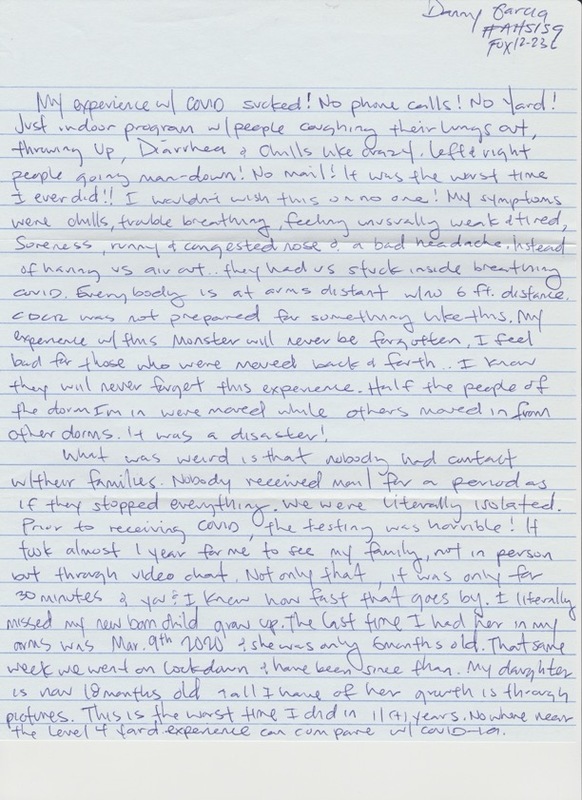 Danny Garcia
#AH5159
FOX12-23L
My experience w/ COVID sucked! No phone calls! No Yard!
Just indoor program w/people coughing their lungs out,
throwing up, Diarrhea & Chills like crazy. Left & right
people going man-down! No mail! It was the worst time
I ever did!! I wouldn't wish this on no one! My symptoms
were chills, trouble breathing, feeling unusually weak & tired,
Soreness, runny & congested nose & a bad headache. Instead
of having us air out.. they had us stuck inside breathing
covid. Everybody is at arms distant w/no 6 ft. distance.
CDCR was not prepared for something like this. My
experience w/this Monster will never be forgotten, I feel
bad for those who were moved back & forth.. I know
they will never forget this experience. Half the people of
the dorm I'm in were moved while others moved in from
other dorms. It was a disaster!
What was weird is that nobody had contact
w/their families. Nobody received mail for a period as
if they stopped everything. We were literally isolated.
Prior to receiving COVID, the testing was horrible! It
took almost 1 year for me to see my family, not in person
but through video chat. Not only that, it was only for
30 minutes & I know how fast that goes by. I literally
missed my new born child grow up. The last time I had her in my
arms was Mar. 9th 2020 & she was only 6 months old. That same
week we went on lockdown & have been since than. My daughter
is now 18 months old & all I have of her growth is through
pictures. This is the worst time I did in 11(+) years. Nowhere near
the Level 4 Yard experience can compare w/ covid-19.